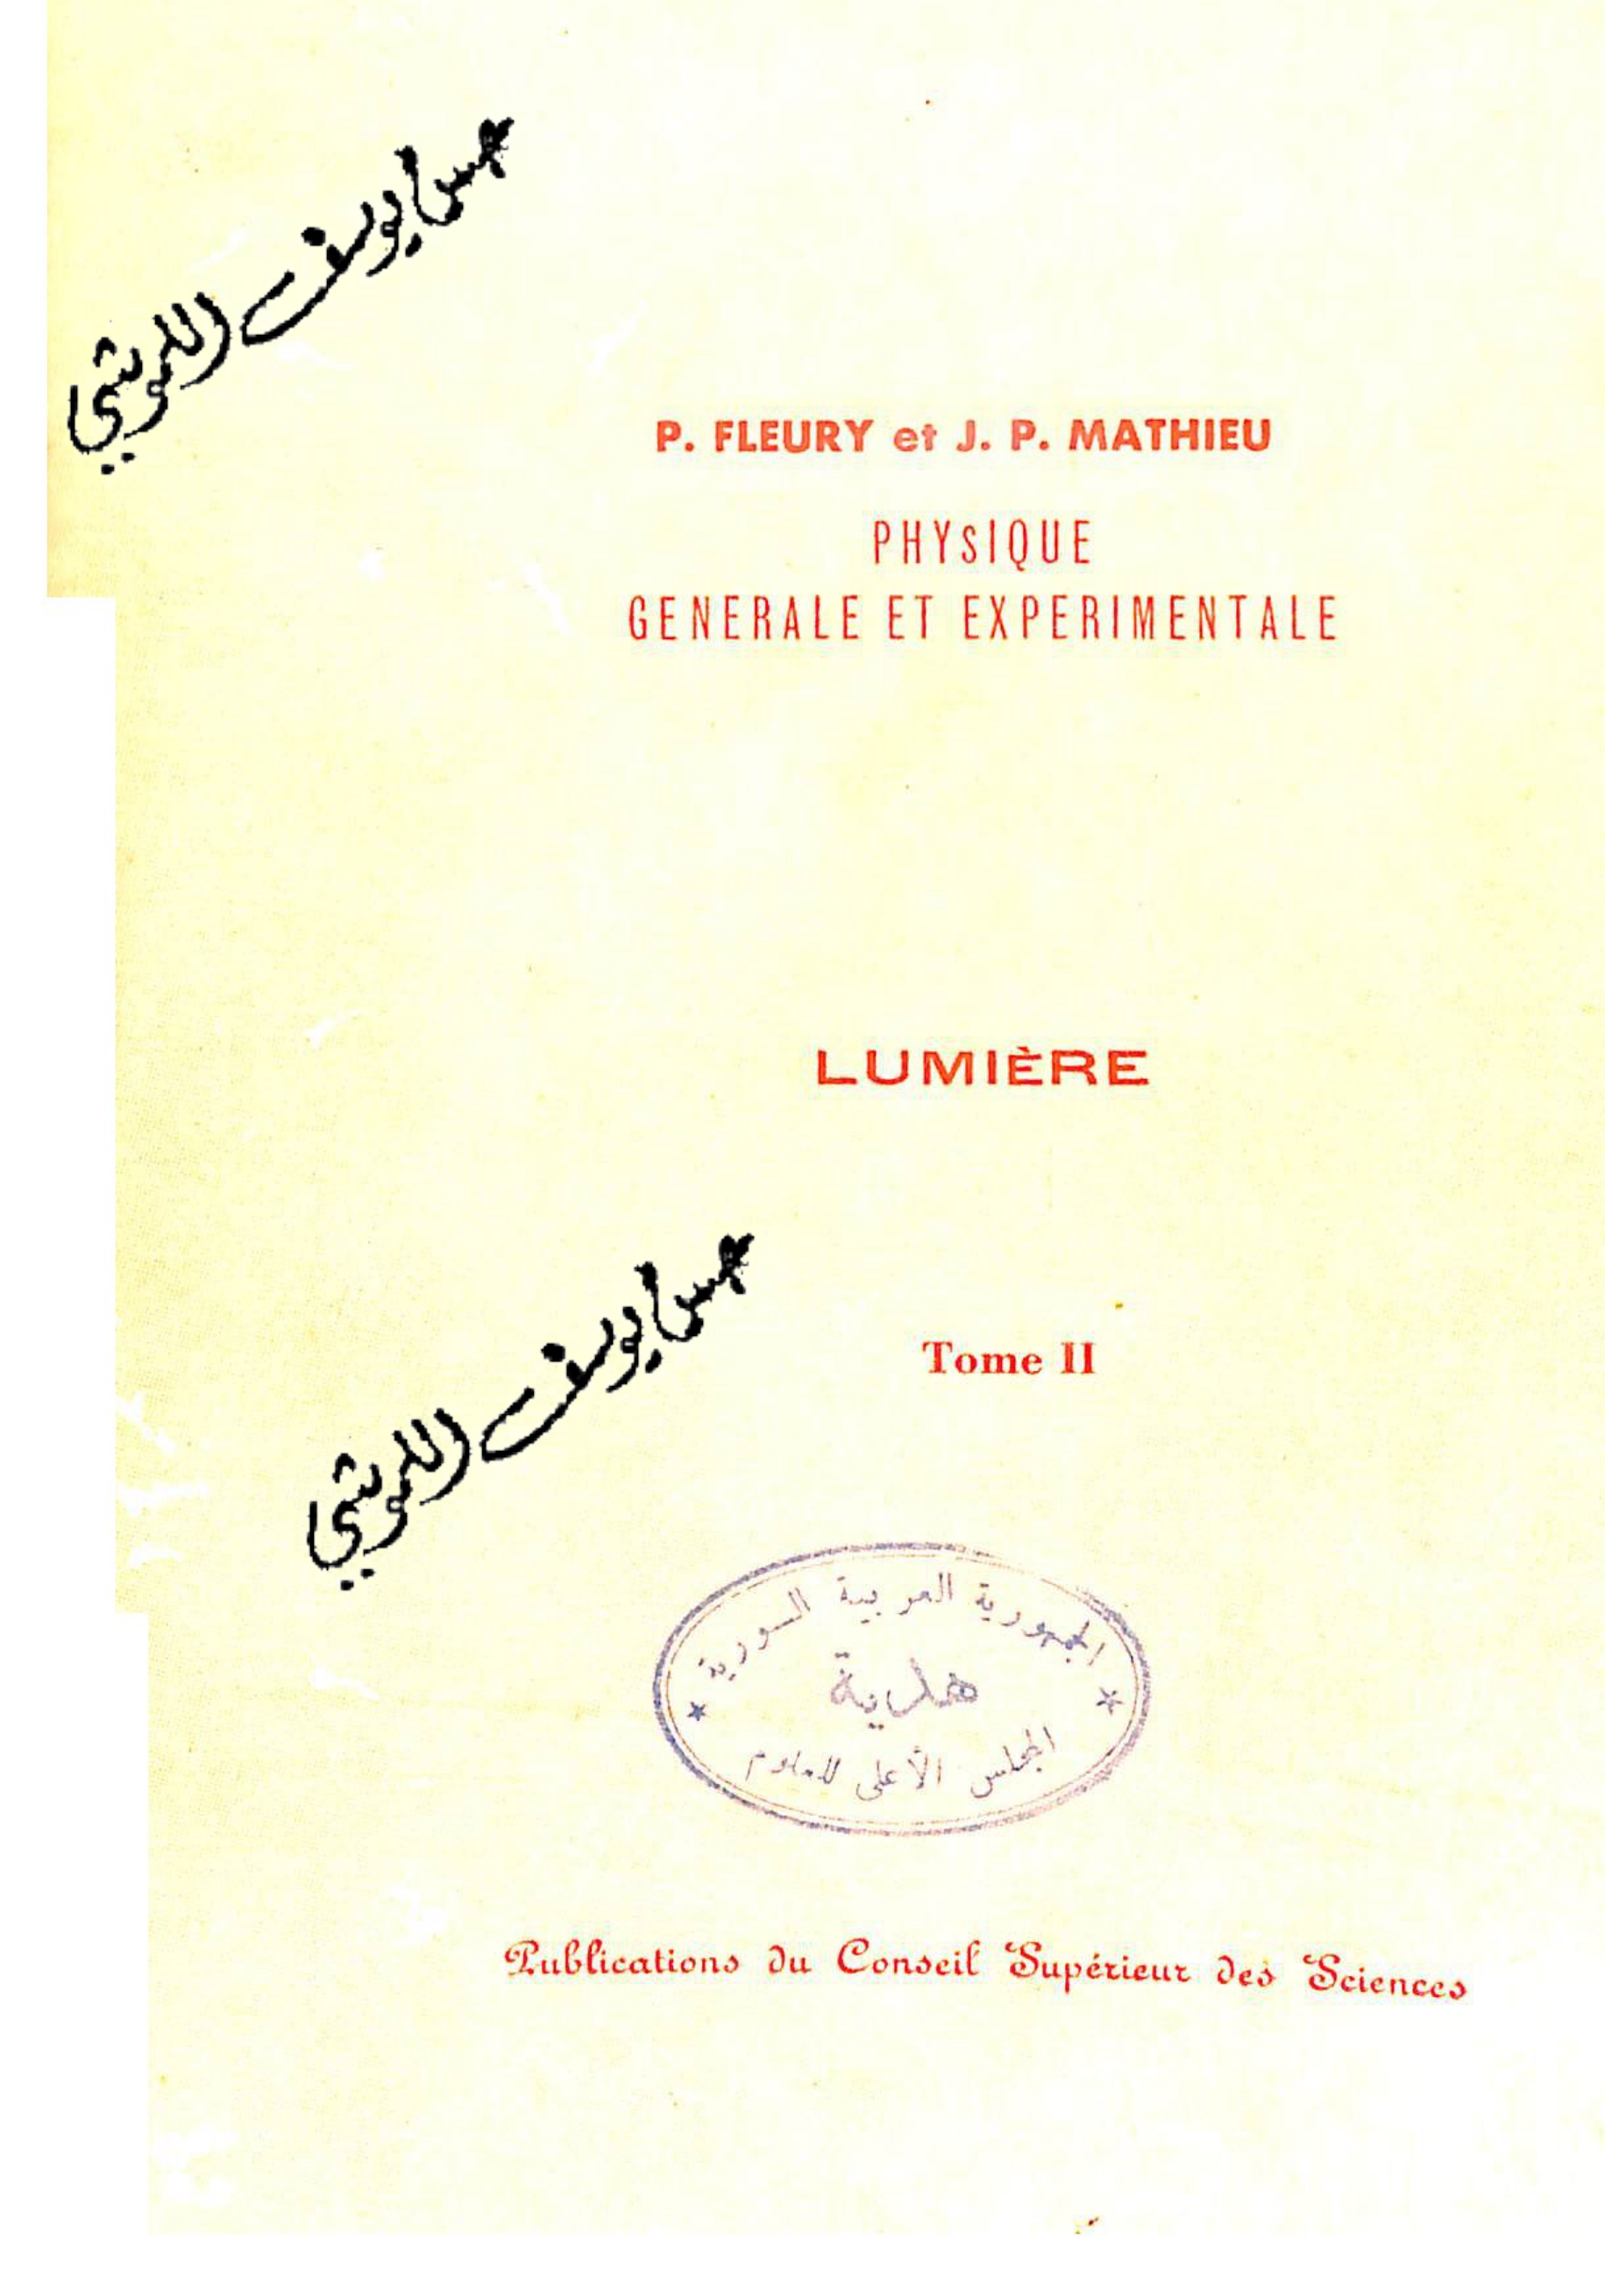 P. FLEURY et J. P. MATHIEU
PHYSIQUE
GENERALE ET EXPERIMENTALE
LUMIÈRE
Tome II
الجمهورية العربية السورية
هدية
المجلس الأعلى للعلوم
Publications du Conseil Supérieur des Sciences